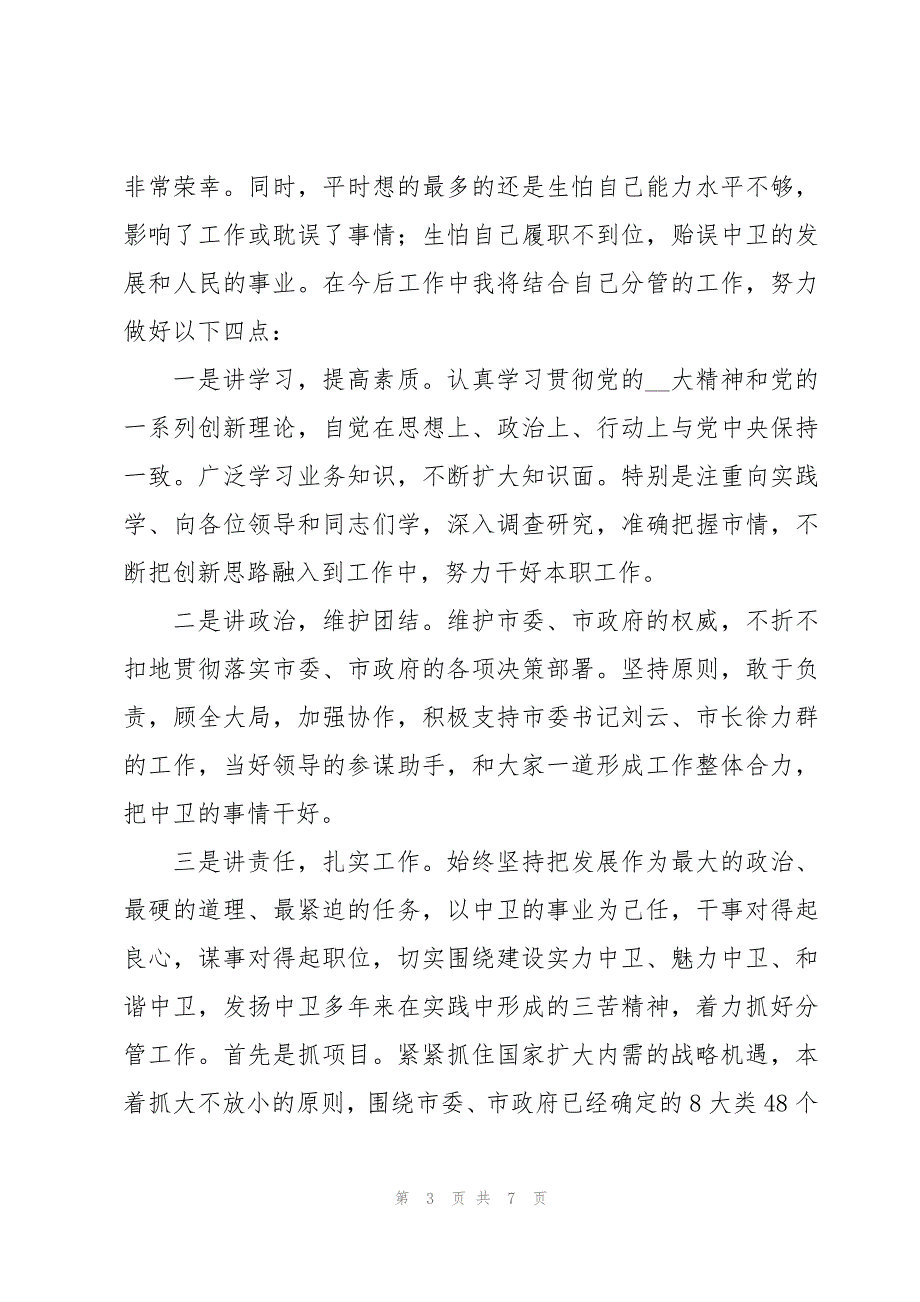 非常荣幸。同时，平时想的最多的还是生怕自己能力水平不够，
影响了工作或耽误了事情；生怕自己履职不到位，贻误中卫的发
展和人民的事业。在今后工作中我将结合自己分管的工作，努力
做好以下四点：
一是讲学习，提高素质。认真学习贯彻党的__大精神和党的
一系列创新理论，自觉在思想上、政治上、行动上与党中央保持
一致。广泛学习业务知识，不断扩大知识面。特别是注重向实践
学、向各位领导和同志们学，深入调查研究，准确把握市情，不
断把创新思路融入到工作中，努力干好本职工作。
二是讲政治，维护团结。维护市委、市政府的权威，不折不
扣地贯彻落实市委、市政府的各项决策部署。坚持原则，敢于负
责，顾全大局，加强协作，积极支持市委书记刘云、市长徐力群
的工作，当好领导的参谋助手，和大家一道形成工作整体合力，
把中卫的事情干好。
三是讲责任，扎实工作。始终坚持把发展作为最大的政治、
最硬的道理、最紧迫的任务，以中卫的事业为己任，干事对得起
良心，谋事对得起职位，切实围绕建设实力中卫、魅力中卫、和
谐中卫，发扬中卫多年来在实践中形成的三苦精神，着力抓好分
管工作。首先是抓项目。紧紧抓住国家扩大内需的战略机遇，本
着抓大不放小的原则，围绕市委、市政府已经确定的8大类48个
第 3 页 共 7 页